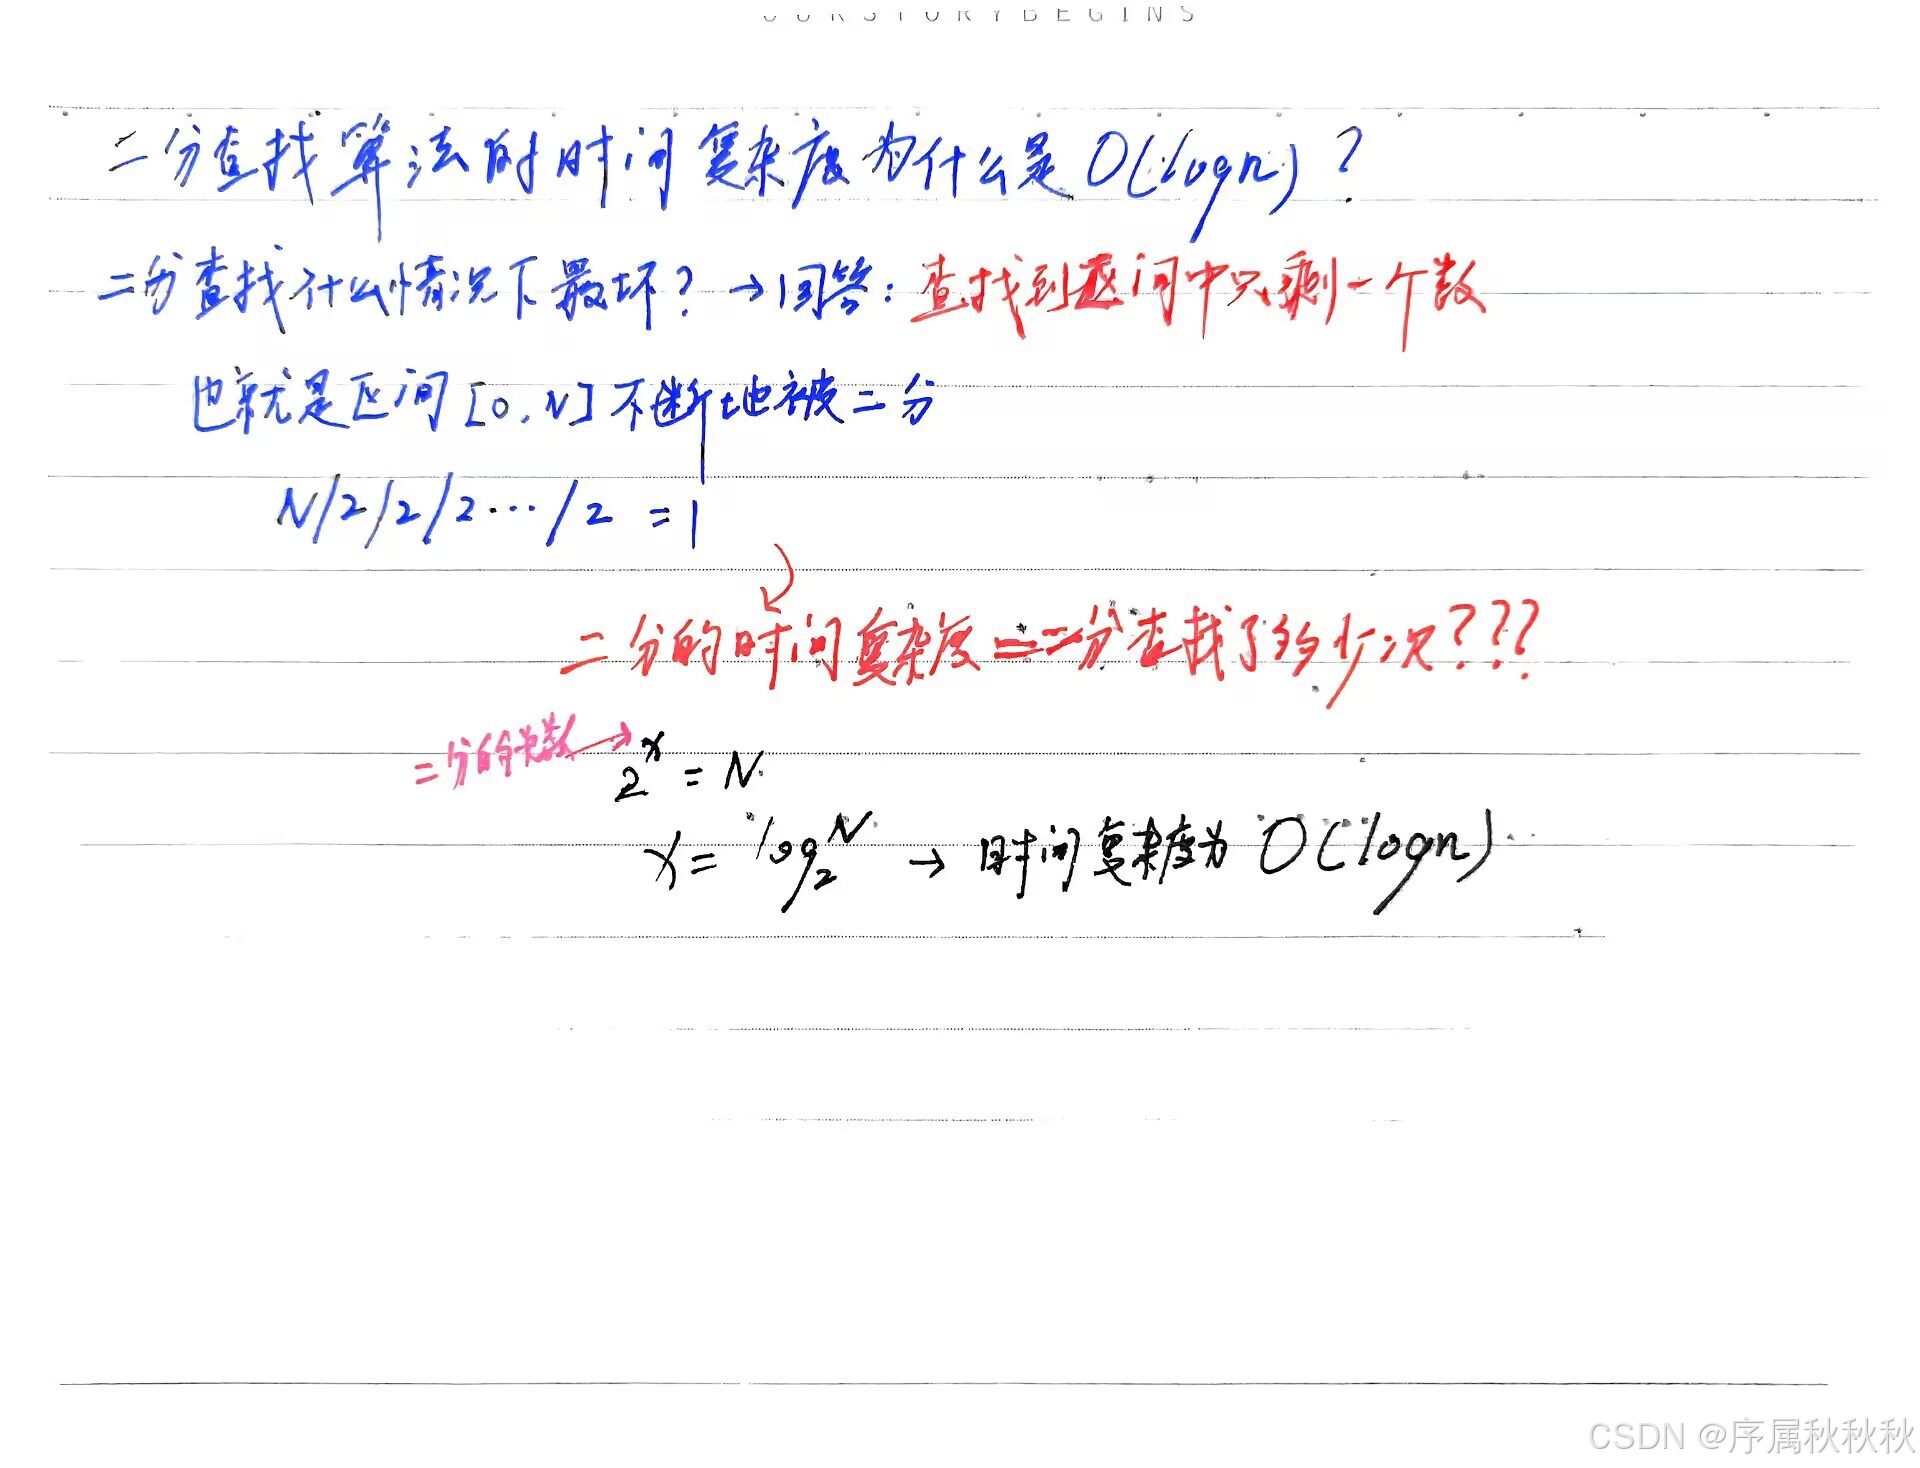 OURSTORYBEGINS
二分查找算法的时间复杂度为什么是O(logn)?
二分查找什么情况下最坏?→回答:查找到区间中只剩一个数
也就是区间[0,N]不断地被二分
N/2/2/2···/2 =1
二分的时间复杂度=二分查找了多少次???
二分的次数→ 2^x = N
x = log₂N → 时间复杂度为 O(logn)
CSDN @序属秋秋秋